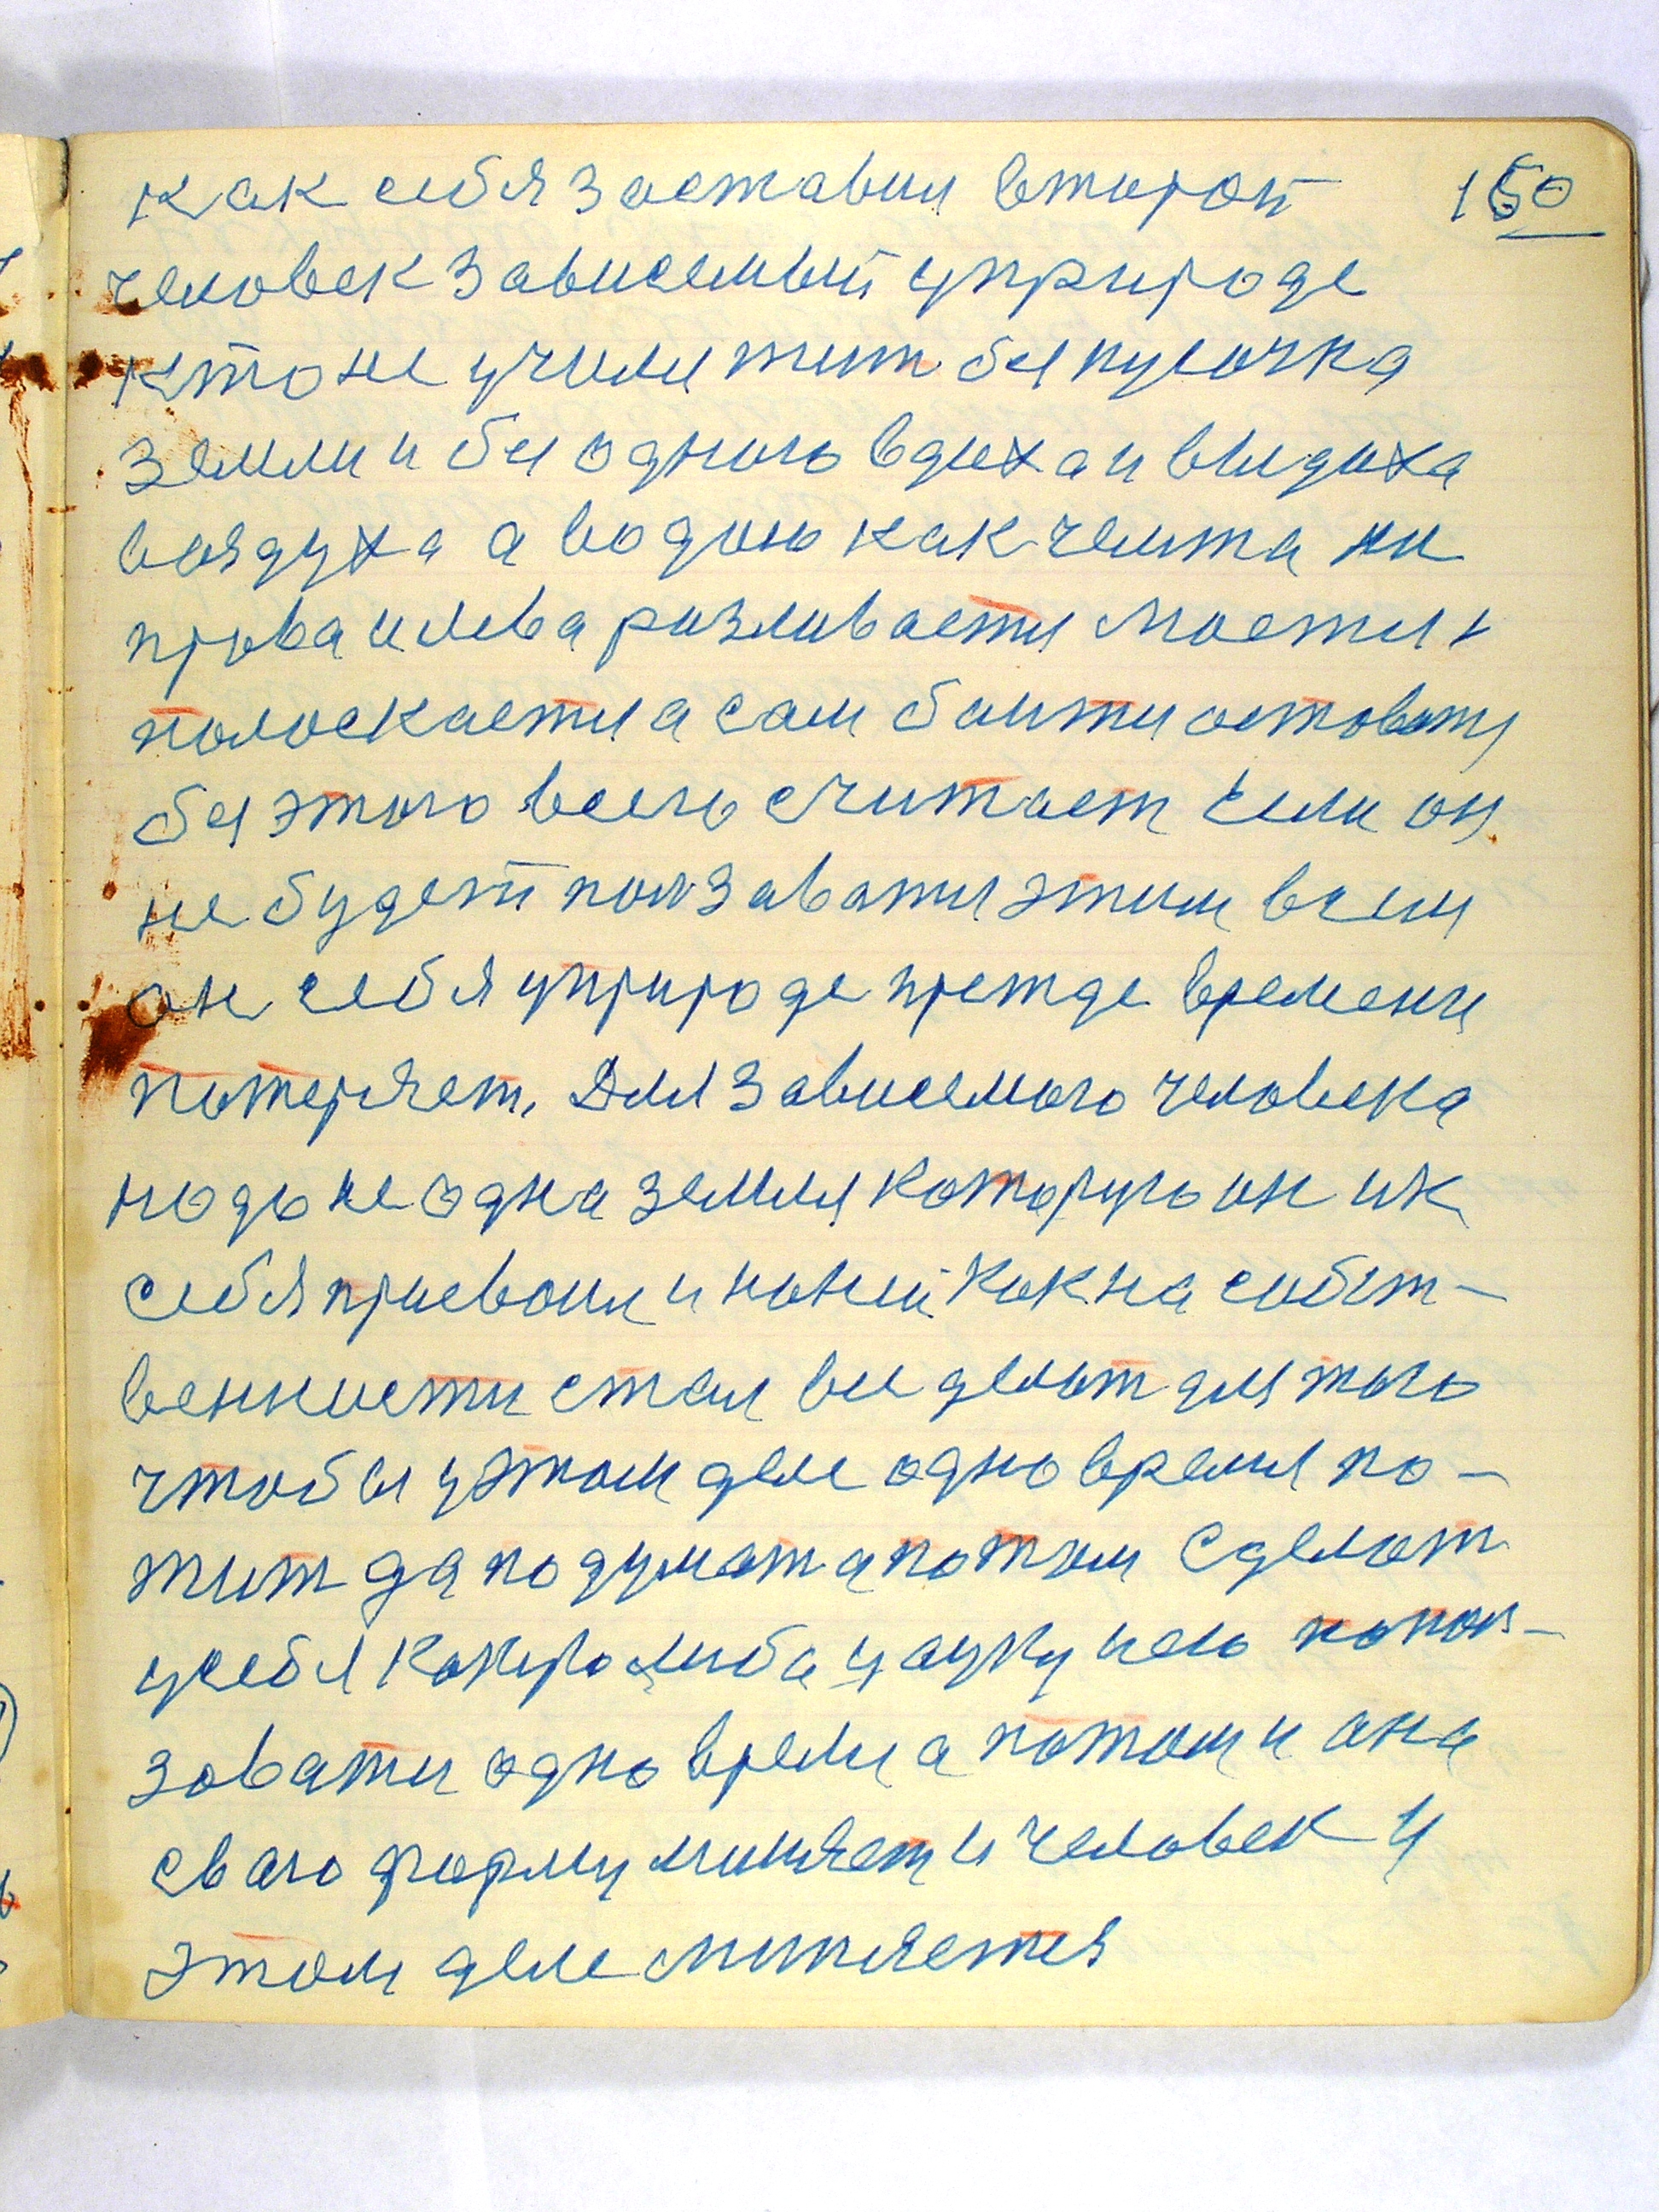 как себя заставил второй 150
человек зависемый уприроде
кто не учился жит без кусочка
земли и без одного вдоха и выдоха
воздуха а водою как чемта на
права и лева розливается моется и
полоскается а сам боится оставатся
без этого всего считает Если он
не будет ползаватся этим всем
он себя уприроде прежде времени
потеряет. Для зависемого человека
надо не одна земля которую он ик
себя присвоил и наней как на собст-
венности стал все делат для того
чтобы уэтом деле одно время по-
жит да подумат а потом сделат
усебя какуюлиба у ауку нею попол-
зоватся одно время а потом и она
сваю форму миняет и человек у
этом деле миняется